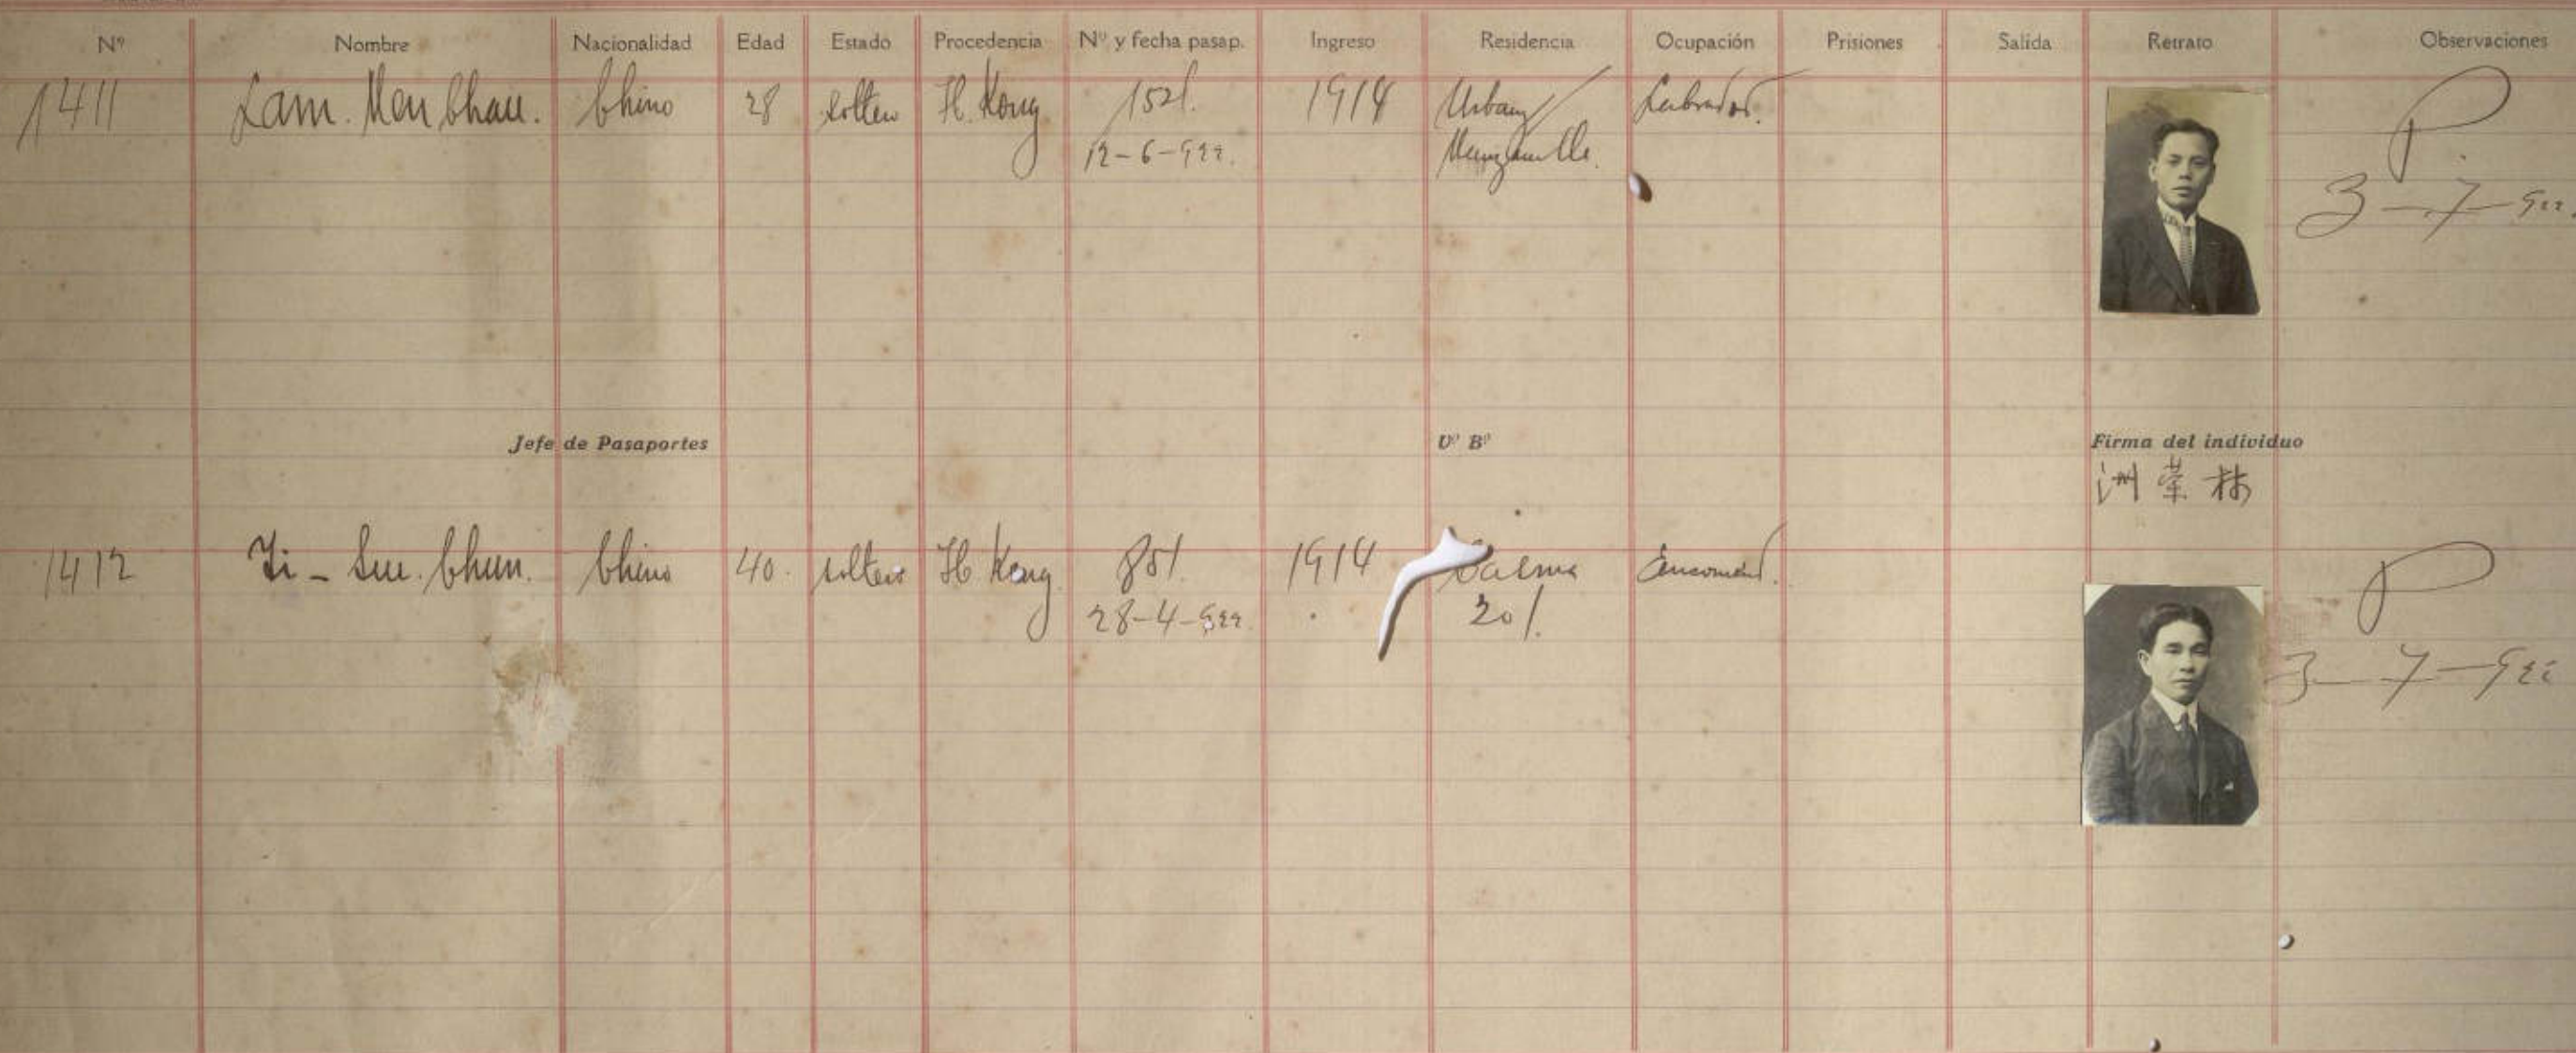 Nº Nombre Nacionalidad Edad Estado Procedencia Nº y fecha pasap. Ingreso Residencia Ocupación Prisiones Salida Retrato Observaciones
1411 Lam. Men Chau. Chino 28 soltero H. Kong 152/. 1914 Urbano Labrador. P.
12-6-922. Manzanillo. 3-7-922.
Jefe de Pasaportes Vº Bº Firma del individuo
洲荣林
1412 Ti - Sue. Chun. Chino 40. soltero H Kong 85/. 1914 Palma Encomend. P
28-4-922. 20/. 3-7-922